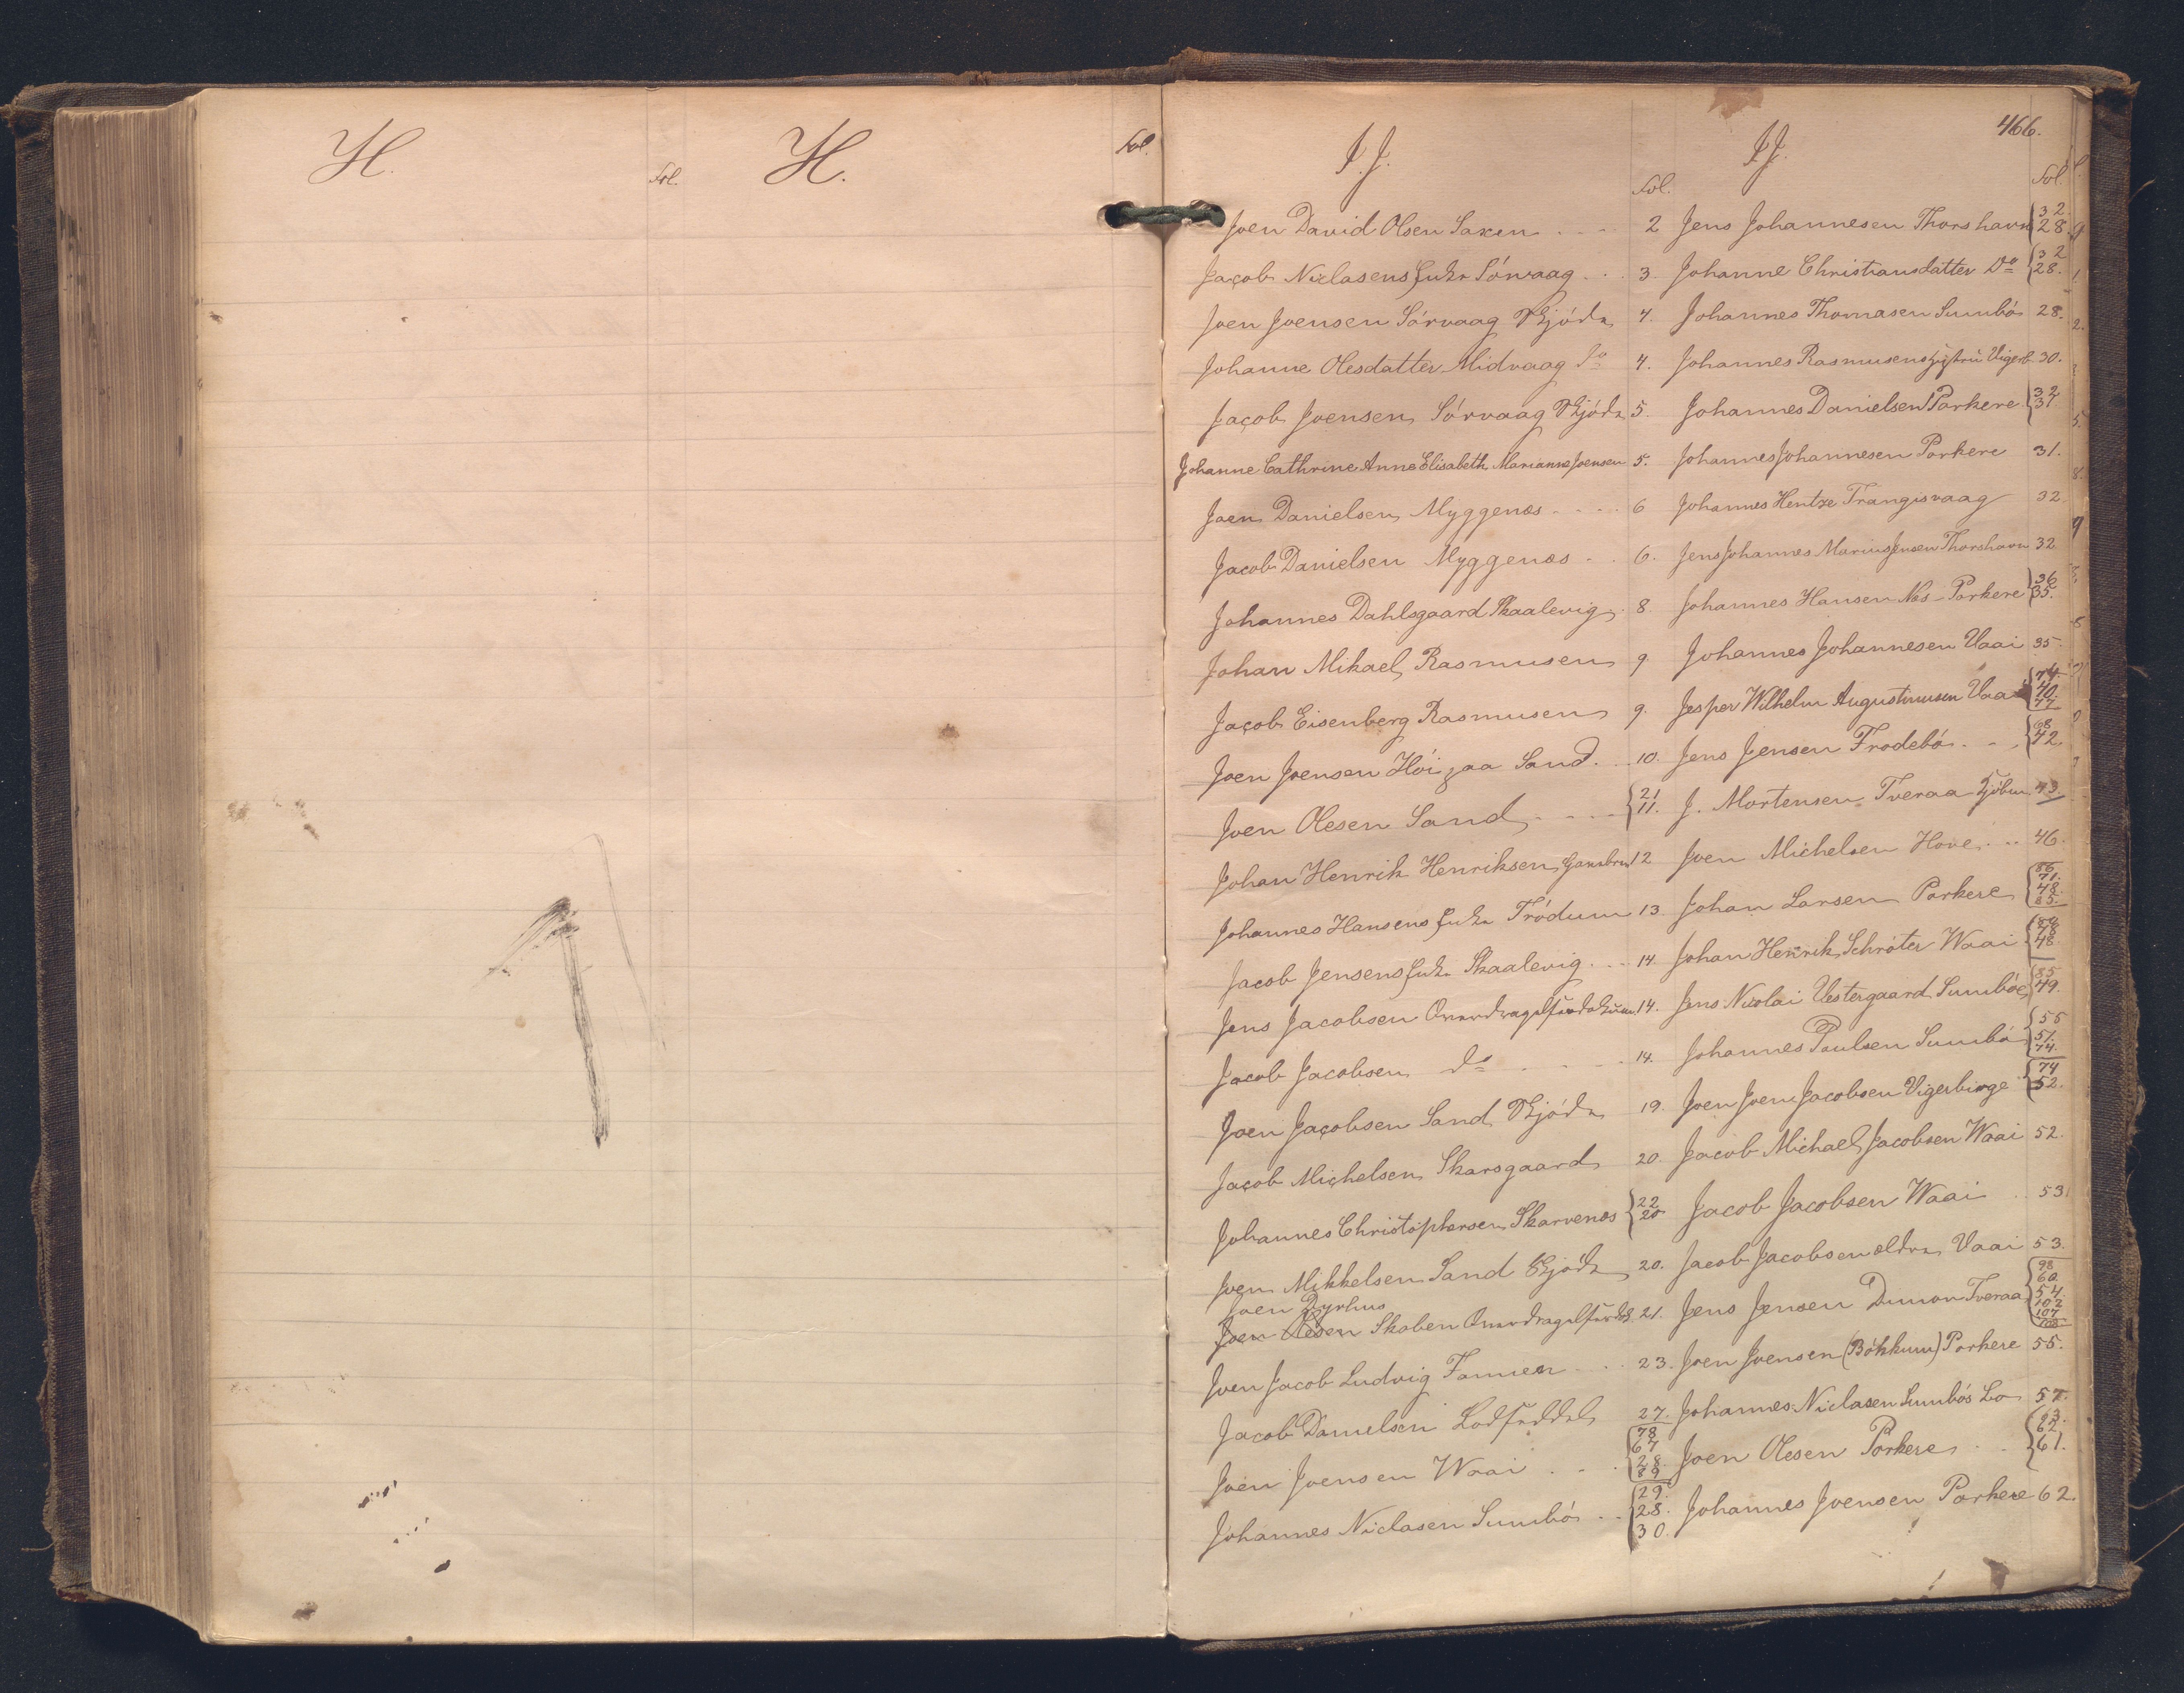 H.
Fol.
H.
Fol.
466.
I. J.
Fol.
Joen David Olsen Saxen 2
Jacob Niclasens Enke Sórvaag 3.
Joen Joensen Sórvaag Skjóde 4.
Johanne Olesdatter Midvaag Do 4.
Jacob Joensen Sórvaag Skjóde 5.
Johanne Cathrine Anne Elisabeth Marianne Joensen 5.
Joen Danielsen Myggenæs 6
Jacob Danielsen Myggenæs 6.
Johannes Dahlsgaard Skaalevig 8
Johan Mikael Rasmusen 9.
Jacob Eisenberg Rasmusen 9.
Joen Joensen Hóigaa Sand 10.
Joen Olesen Sand 21 11.
Johan Henrik Henriksen 12
Johannes Hansens Enke Tródum 13.
Jacob Jensens Enke Skaalevig 14.
Jens Jacobsen 14.
Jacob Jacobsen do 14.
Joen Jacobsen Sand Skjóde 19.
Jacob Michelsen Skarsgaard 20.
Johannes Christophersen Skarvenæs 22 20
Joen Mikkelsen Sand Skjóde 20.
Joen Dyrhus
Joen Olesen Skoben 21.
Joen Jacob Ludvig Famien 23.
Jacob Danielsen Lodseddel 27.
Joen Joensen Waai 78 67 28. 89
Johannes Niclasen Sumbó 29. 28. 30.
I J.
Fol.
Jens Johannesen Thorshavn 32. 28.
Johanne Christiansdatter Do 32 28.
Johannes Thomasen Sumbó 28.
Johannes Rasmusens Hustru Vigerb 30.
Johannes Danielsen Porkere 32 31
Johannes Johannesen Porkere 31.
Johannes Hentze Trangisvaag 32
Jens Johannes Marius Jensen Thorshavn 32
Johannes Hansen Næs-Porkere 36 35.
Johannes Johannesen Vaai 35
Jesper Wilhelm Augustinusen Vaai 74. 40. 77.
Jens Jensen Frodebó 68 42
J. Mortensen Tveraa Kjóbm 43.
Joen Michelsen Hove 46.
Johan Larsen Porkere 86 71. 48. 85.
Johan Henrik Schróter Waai 84 78 48.
Jens Nicolai Vestergaard Sumbóe 85 49.
Johannes Poulsen Sumbó 55 51. 74.
Joen Joen Jacobsen Vigerbirge 74 52.
Jacob Michael Jacobsen Waai 52.
Jacob Jacobsen Waai 53.
Jacob Jacobsen ældre Vaai 53.
Jens Jensen Dimon Tveraa 98 60. 54. 102 107 108
Joen Joensen (Bókkum) Porkere 55.
Johannes Niclasen Sumbós Bo 57.
Joen Olesen Porkere 63. 62. 61.
Johannes Joensen Porkere 62.